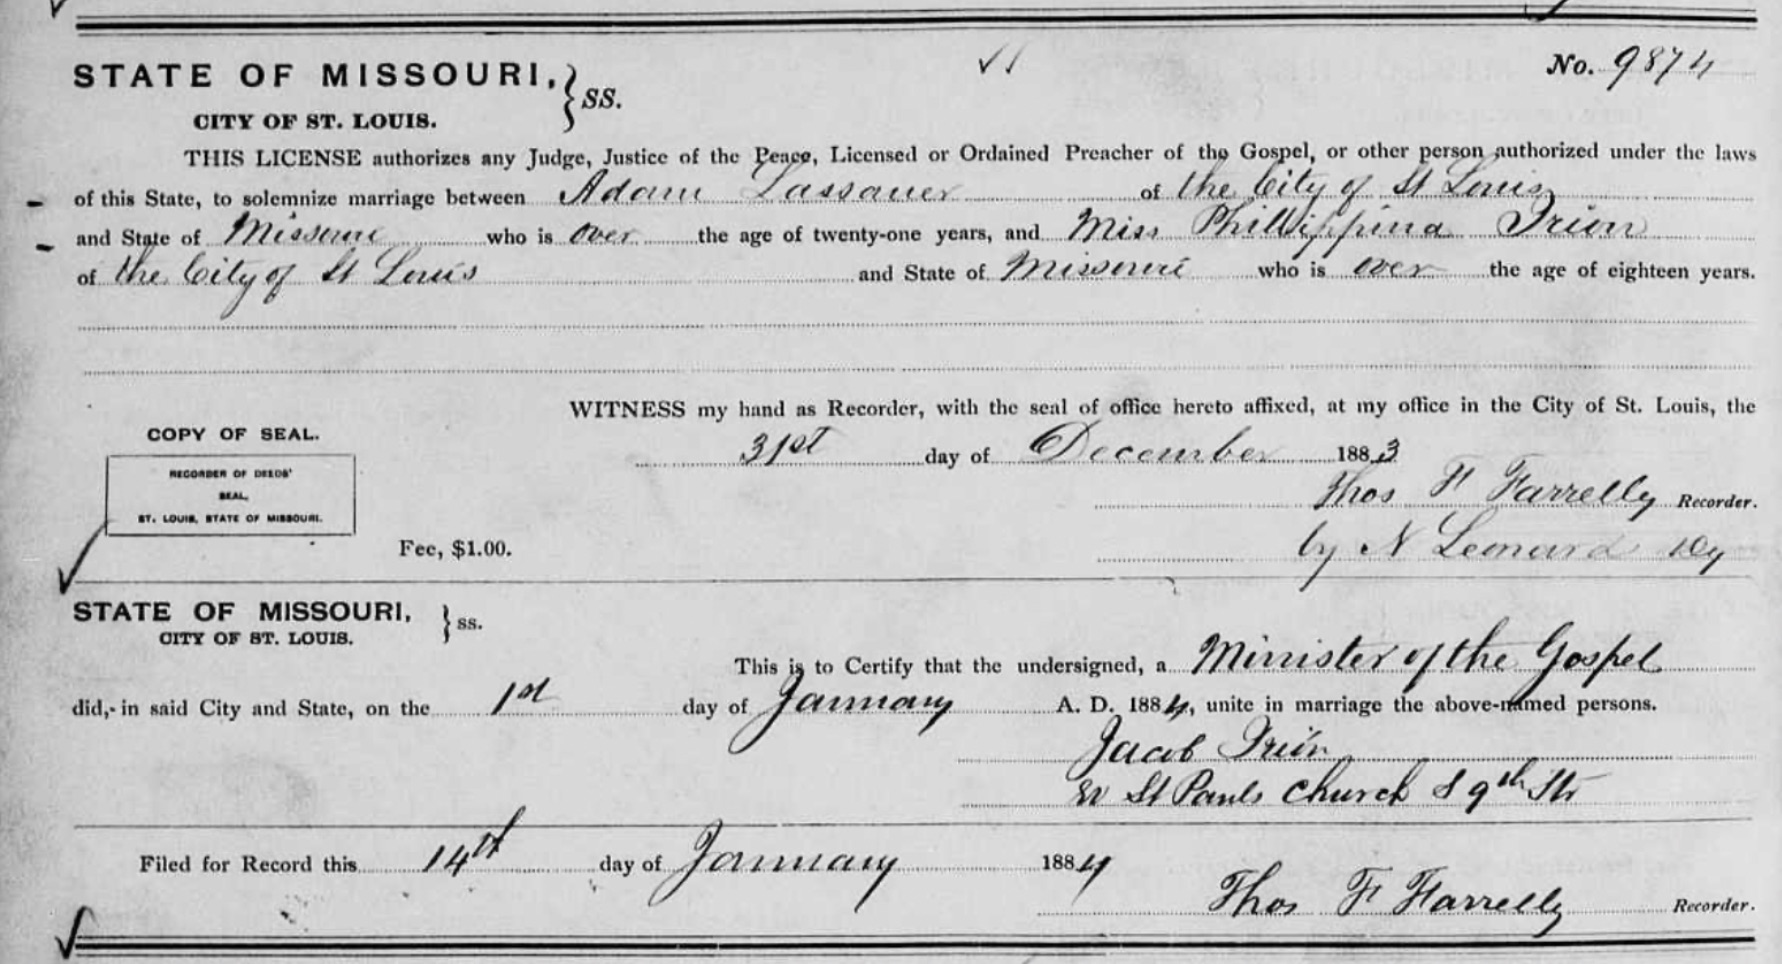 No. 9874
STATE OF MISSOURI, } SS.
CITY OF ST. LOUIS.
THIS LICENSE authorizes any Judge, Justice of the Peace, Licensed or Ordained Preacher of the Gospel, or other person authorized under the laws
of this State, to solemnize marriage between Adam Lassauer of the City of St Louis
and State of Missouri who is over the age of twenty-one years, and Miss Phillippina Irion
of the City of St Louis and State of Missouri who is over the age of eighteen years.
WITNESS my hand as Recorder, with the seal of office hereto affixed, at my office in the City of St. Louis, the
31st day of December 1883
COPY OF SEAL.
RECORDER OF DEEDS'
SEAL,
ST. LOUIS, STATE OF MISSOURI.
Thos F Farrelly Recorder.
Fee, $1.00.
by N Leonard Dy
STATE OF MISSOURI, } ss.
CITY OF ST. LOUIS.
This is to Certify that the undersigned, a Minister of the Gospel
did, in said City and State, on the 1st day of January A. D. 1884, unite in marriage the above-named persons.
Jacob Irion
St Pauls Church S 9th Str
Filed for Record this 14th day of January 1884
Thos F Farrelly Recorder.